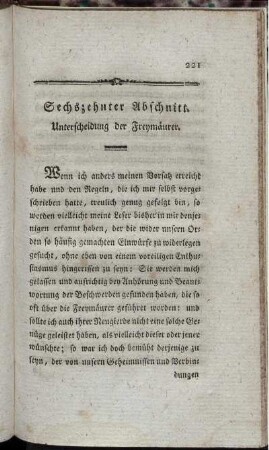 221
Sechszehnter Abschnitt.
Unterscheidung der Freymäurer.
Wenn ich anders meinen Vorsatz erreicht
habe und den Regeln, die ich mir selbst vorge
schrieben hatte, treulich genug gefolgt bin, so
werden vielleicht meine Leser bisher in mir denjes
nigen erkannt haben, der die wider unsern Or
den so häufig gemachten Einwürfe zu widerlegen
gesucht, ohne eben von einem voreiligen Enthu
siasmus hingerissen zu seyn: Sie werden mich
gelassen und aufrichtig bey Anhörung und Beant
wortung der Beschwerden gefunden haben, die so
oft über die Freymäurer geführet worden: und
sollte ich auch ihrer Neugierde nicht eine solche Ge
nüge geleistet haben, als vielleicht dieser oder jener
wünschte; so war ich doch bemüht derjenige zu
seyn, der von unsern Geheimnissen und Verbin
dungen